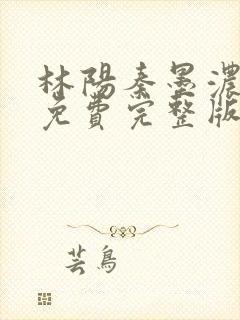 林陽秦墨濃
免費完整版
芸鳥